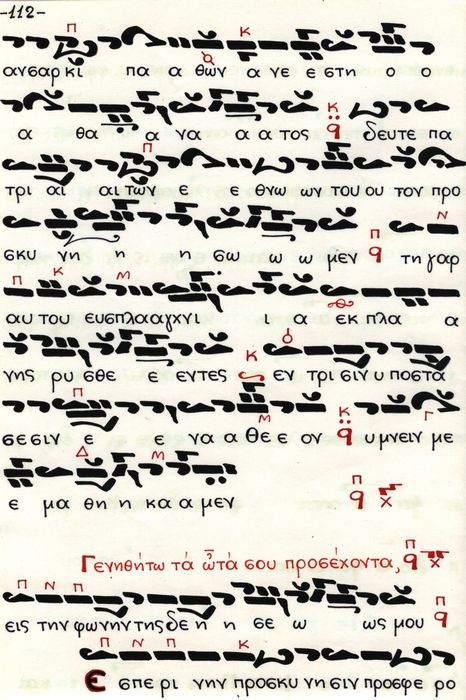 -112-
ανσαρκι πα α θων α νε ε στη ο ο
α θα α να α α τος δευτε πα
τρι αι αι των ε ε θνω ων του ου τον προ
σκυ νη η σω ω ω μεν τη γαρ
αυ του ευσπλααγχνι ι α εκ πλα α
νης ρυ σθε ε εντες εν τρι σιν υποστα
σε σιν ε ε να α θε ε ον υ μνειν με
ε μα θη η κα α μεν
Γενηθήτω τά ὦτά σου προσέχοντα,
εις την φωνην της δε η η σε ω ως μου
Ε σπε ρι νην προσκυ νη σιν προσφε ρο